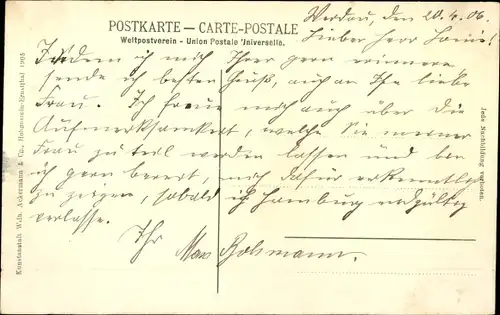 POSTKARTE – CARTE-POSTALE
Weltpostverein - Union Postale Universelle.
Werdau, den 20.4.06.
Lieber Herr
Indem ich mich Ihrer gern erinnere
sende ich besten Gruß, auch an Ihre liebe
Frau. Ich freue mich auch über die
Aufmerksamkeit, welche Sie meiner
Frau zu teil werden lassen und bin
ich gern bereit, mich dafür erkenntlich
zu zeigen, sobald ich Hamburg endgültig
verlasse.
Ihr Max Bohmann.
Kunstanstalt W.ilh. Ackermann & Co., Hohenstein-Ernstthal 1905
Jede Nachbildung verboten.